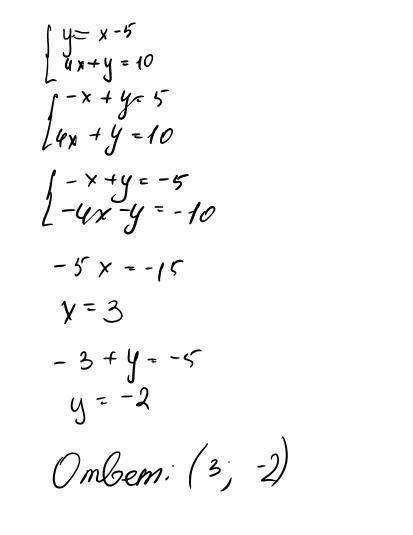 y = x - 5
4x + y = 10
-x + y = 5
4x + y = 10
-x + y = -5
-4x - y = -10
-5x = -15
x = 3
-3 + y = -5
y = -2
Ответ: (3; -2)